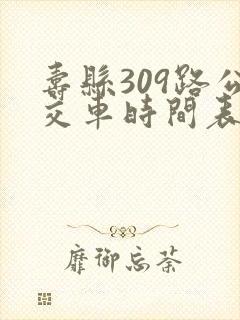 壽縣309路公
交車時間表
靡御忘荼